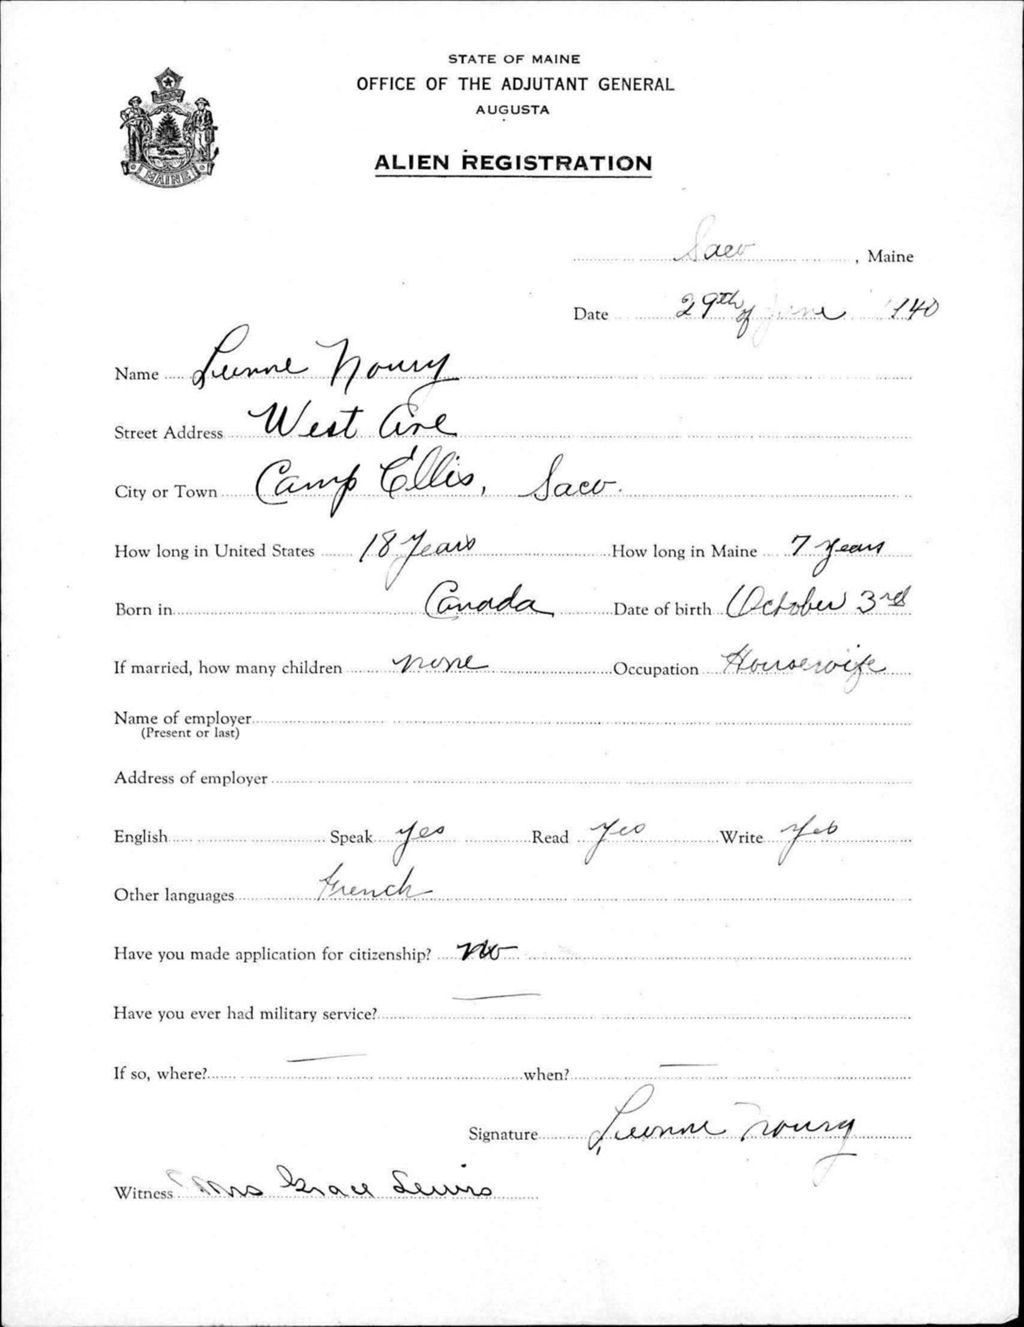 STATE OF MAINE
OFFICE OF THE ADJUTANT GENERAL
AUGUSTA
ALIEN REGISTRATION
MAINE
Saco, Maine
Date 29th of June 1940
Name Noury
Street Address West Ave
City or Town Camp Ellis, Saco.
How long in United States 18 Years How long in Maine 7 years
Born in Canada Date of birth October 3rd
If married, how many children none Occupation Housewife
Name of employer
(Present or last)
Address of employer
English Speak yes Read yes Write yes
Other languages French
Have you made application for citizenship? no
Have you ever had military service? —
If so, where? — when? —
Signature Noury
Witness Mrs Grace Lewis